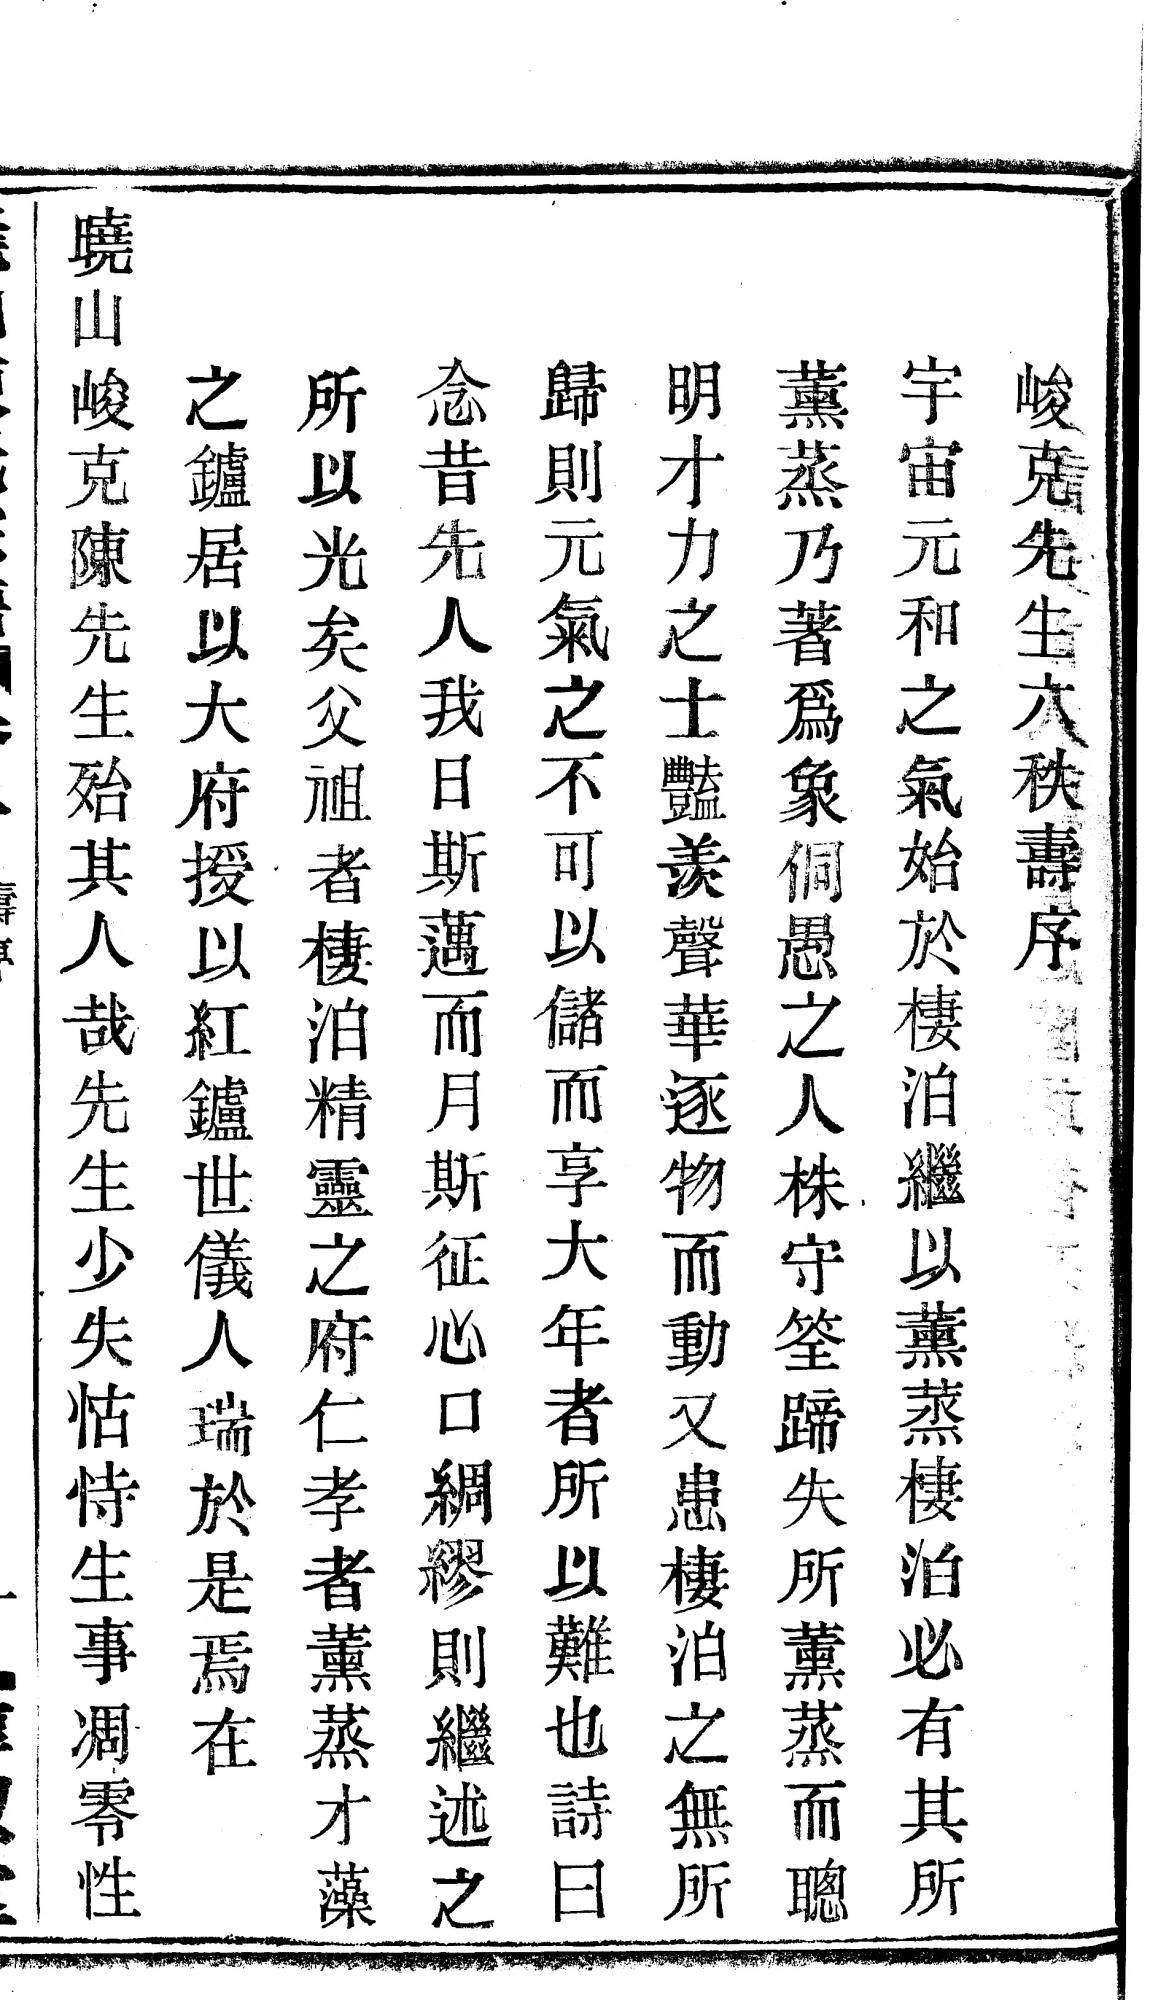 峻克先生六秩壽序
宇宙元和之氣始於棲泊繼以薰蒸棲泊必有其所
薰蒸乃著爲象侗愚之人株守筌蹄失所薰蒸而聰
明才力之士豔羨聲華逐物而動又患棲泊之無所
歸則元氣之不可以儲而享大年者所以難也詩曰
念昔先人我日斯邁而月斯征心口綢繆則繼述之
所以光矣父祖者棲泊精靈之府仁孝者薰蒸才藻
之鑪居以大府授以紅鑪世儀人瑞於是焉在
曉山峻克陳先生殆其人哉先生少失怙恃生事凋零性
壽序